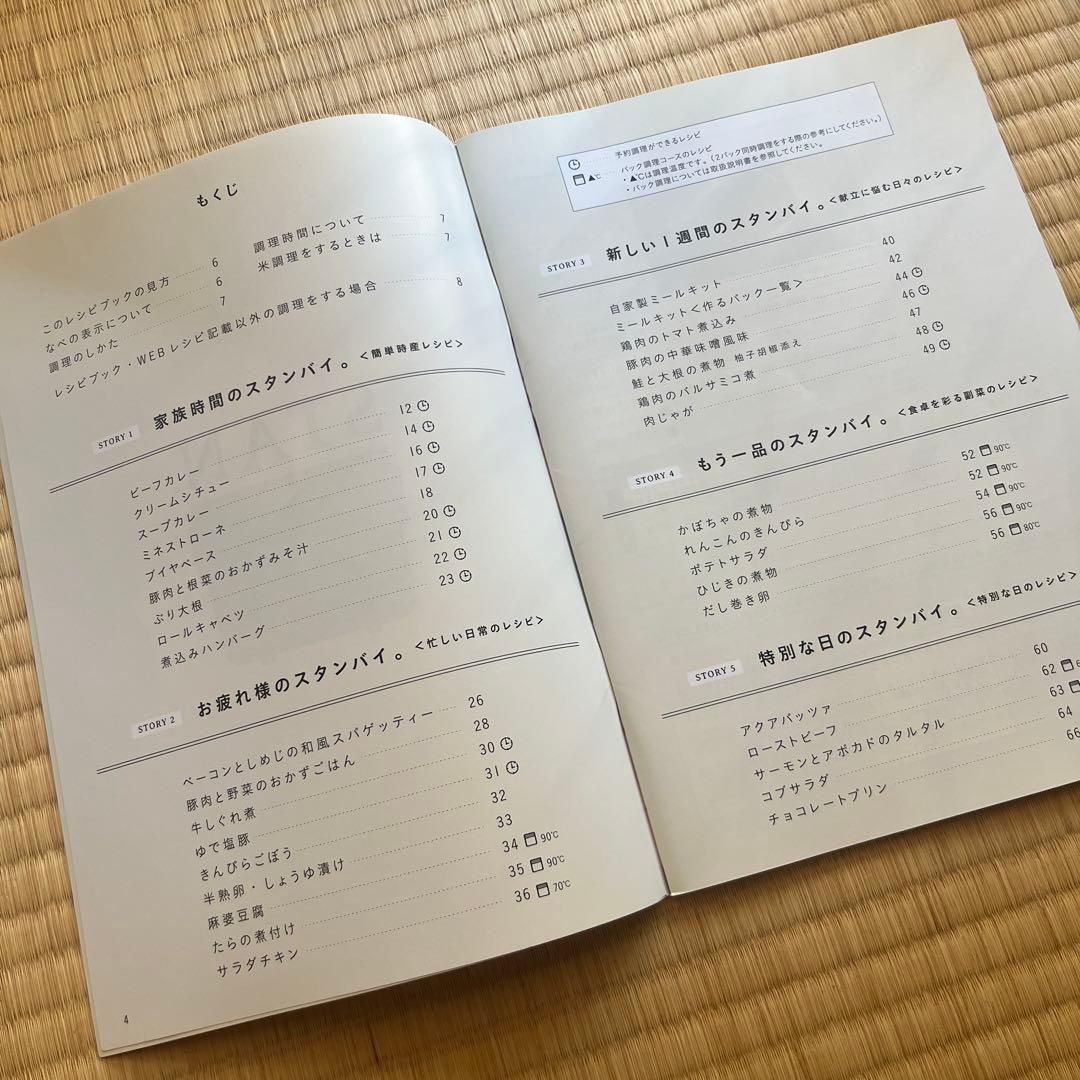 もくじ
このレシピブックの見方 6
なべの表示について 6
調理のしかた 7
調理時間について 7
米調理をするときは 7
レシピブック・WEBレシピ記載以外の調理をする場合 8
STORY 1 家族時間のスタンバイ。<簡単時産レシピ>
ビーフカレー 12
クリームシチュー 14
スープカレー 16
ミネストローネ 17
ブイヤベース 18
豚肉と根菜のおかずみそ汁 20
ぶり大根 21
ロールキャベツ 22
煮込みハンバーグ 23
STORY 2 お疲れ様のスタンバイ。<忙しい日常のレシピ>
ベーコンとしめじの和風スパゲッティー 26
豚肉と野菜のおかずごはん 28
牛しぐれ煮 30
ゆで塩豚 31
きんぴらごぼう 32
半熟卵・しょうゆ漬け 33
麻婆豆腐 34 90℃
たらの煮付け 35 90℃
サラダチキン 36 70℃
4
予約調理ができるレシピ
▲℃ パック調理コースのレシピ
・▲℃は調理温度です。(2パック同時調理をする際の参考にしてください。)
・パック調理については取扱説明書を参照してください。
STORY 3 新しい1週間のスタンバイ。<献立に悩む日々のレシピ>
自家製ミールキット 40
ミールキット<作るパック一覧> 42
鶏肉のトマト煮込み 44
豚肉の中華味噌風味 46
鮭と大根の煮物 柚子胡椒添え 47
鶏肉のバルサミコ煮 48
肉じゃが 49
STORY 4 もう一品のスタンバイ。<食卓を彩る副菜のレシピ>
かぼちゃの煮物 52 90℃
れんこんのきんぴら 52 90℃
ポテトサラダ 54 90℃
ひじきの煮物 56 90℃
だし巻き卵 56 80℃
STORY 5 特別な日のスタンバイ。<特別な日のレシピ>
アクアパッツァ 60
ローストビーフ 62
サーモンとアボカドのタルタル 63
コブサラダ 64
チョコレートプリン 66